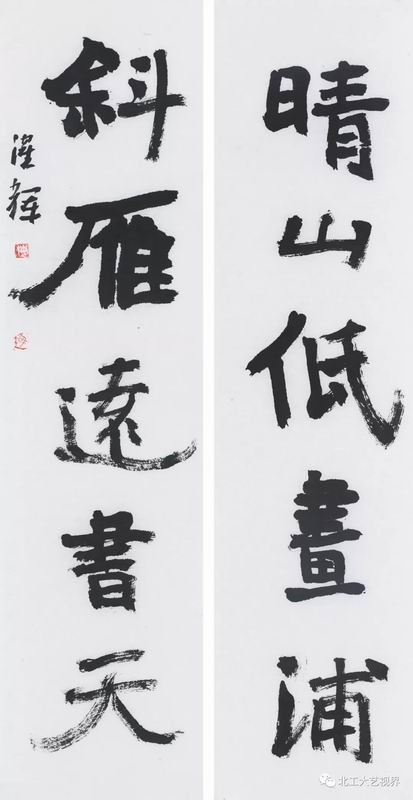 晴山低畫浦
斜雁遠書天
北工大艺视界